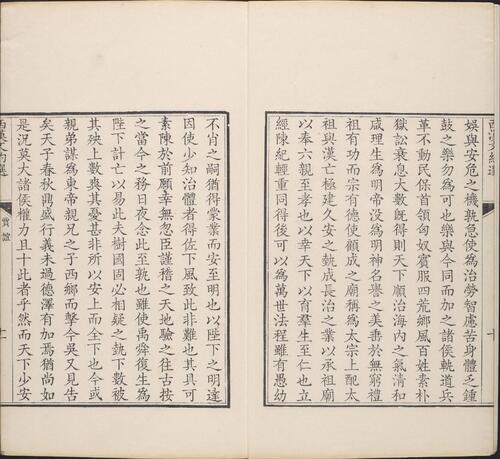 娛與安危之機孰急使為治勞智慮苦身體乏鍾
鼓之樂勿為可也樂與今同而加之諸侯軌道兵
革不動民保首領匈奴賓服四荒鄉風百姓素朴
獄訟衰息大數既得則天下順治海內之氣清和
咸理生為明帝沒為明神名譽之美垂於無窮禮
祖有功而宗有德使顧成之廟稱為太宗上配太
祖與漢亡極建久安之埶成長治之業以承祖廟
以奉六親至孝也以幸天下以育羣生至仁也立
經陳紀輕重同得後可以為萬世法程雖有愚幼
不肖之嗣猶得蒙業而安至明也以陛下之明達
因使少知治體者得佐下風致此非難也其具可
素陳於前願幸無忽臣謹稽之天地驗之往古按
之當今之務日夜念此至孰也雖使禹舜復生為
陛下計亡以易此夫樹國固必相疑之埶下數被
其殃上數爽其憂甚非所以安上而全下也今或
親弟謀為東帝親兄之子西鄉而擊今吳又見告
矣天子春秋鼎盛行義未過德澤有加焉猶尚如
是況莫大諸侯權力且十此者乎然而天下少安
賈誼
十